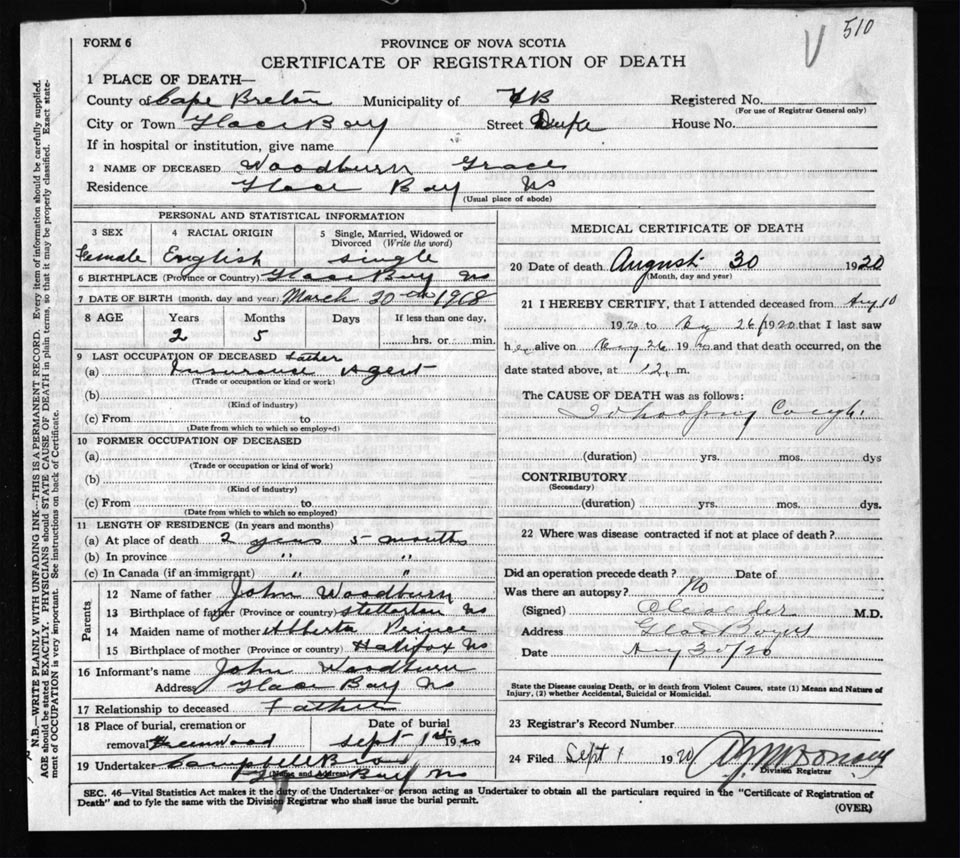 510
FORM 6
PROVINCE OF NOVA SCOTIA
CERTIFICATE OF REGISTRATION OF DEATH
1 PLACE OF DEATH—
County of Cape Breton Municipality of CB Registered No.
(For use of Registrar General only)
City or Town Glace Bay Street House No.
If in hospital or institution, give name
2 NAME OF DECEASED Woodburn Grace
Residence Glace Bay NS
(Usual place of abode)
PERSONAL AND STATISTICAL INFORMATION
3 SEX 4 RACIAL ORIGIN 5 Single, Married, Widowed or Divorced (Write the word)
Female English Single
6 BIRTHPLACE (Province or Country) Glace Bay NS
7 DATE OF BIRTH (month, day and year) March 30 1918
8 AGE Years Months Days If less than one day,
2 5 hrs. or min.
9 LAST OCCUPATION OF DECEASED Father
(a) Insurance Agent
(Trade or occupation or kind or work)
(b)
(Kind of industry)
(c) From to
(Date from which to which so employed)
10 FORMER OCCUPATION OF DECEASED
(a)
(Trade or occupation or kind of work)
(b)
(Kind of industry)
(c) From to
(Date from which to which so employed)
11 LENGTH OF RESIDENCE (In years and months)
(a) At place of death 2 years 5 months
(b) In province " "
(c) In Canada (if an immigrant) " "
Parents
12 Name of father John Woodburn
13 Birthplace of father (Province or country) Stellarton NS
14 Maiden name of mother Alberta Prince
15 Birthplace of mother (Province or country) Halifax NS
16 Informant's name John Woodburn
Address Glace Bay NS
17 Relationship to deceased Father
18 Place of burial, cremation or removal Greenwood Date of burial Sept 1st 1920
19 Undertaker Campbell
(Name and Address) Glace Bay NS
MEDICAL CERTIFICATE OF DEATH
20 Date of death August 30 1920
(Month, day and year)
21 I HEREBY CERTIFY, that I attended deceased from Aug 10
1920 to Aug 26 1920 that I last saw
her alive on Aug 26 1920 and that death occurred, on the
date stated above, at 12 m.
The CAUSE OF DEATH was as follows:
Whooping Cough.
(duration) yrs. mos. dys
CONTRIBUTORY
(Secondary)
(duration) yrs. mos. dys.
22 Where was disease contracted if not at place of death?
Did an operation precede death? Date of
Was there an autopsy? No
(Signed) M.D.
Address Glace Bay NS
Date Aug 30/20
State the Disease causing Death, or in death from Violent Causes, state (1) Means and Nature of
Injury, (2) whether Accidental, Suicidal or Homicidal.
23 Registrar's Record Number
24 Filed Sept 1 1920
Division Registrar
SEC. 46—Vital Statistics Act makes it the duty of the Undertaker or person acting as Undertaker to obtain all the particulars required in the "Certificate of Registration of
Death" and to fyle the same with the Division Registrar who shall issue the burial permit.
(OVER)
N.B.—WRITE PLAINLY WITH UNFADING INK—THIS IS A PERMANENT RECORD. Every item of information should be carefully supplied.
AGE should be stated EXACTLY. PHYSICIANS should STATE CAUSE OF DEATH in plain terms, so that it may be properly classified. Exact state-
ment of OCCUPATION is very important. See instructions on back of Certificate.